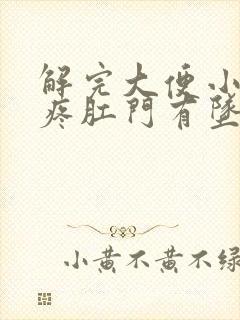 解完大便小
疼肛門有墜
小黃不黃不綠